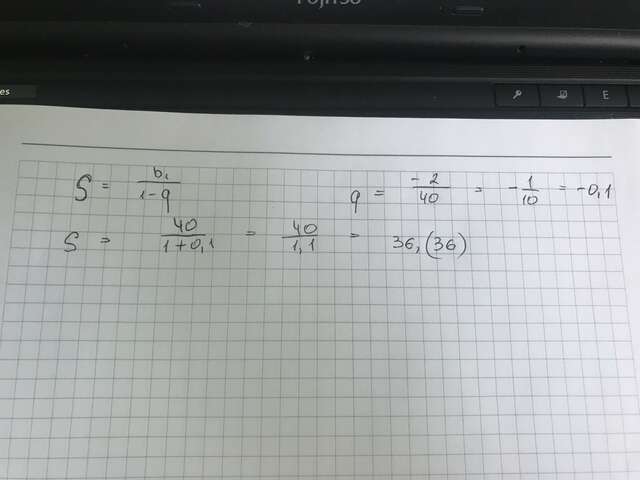 FUJITSU
es
E
S = b₁/(1-q) q = -2/40 = -1/10 = -0,1
S = 40/(1+0,1) = 40/1,1 = 36,(36)